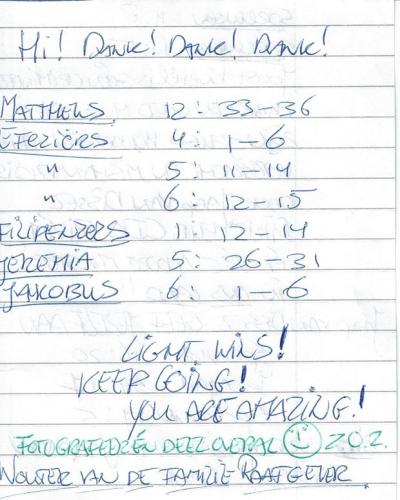 Hi! DANK! DANK! DANK!
MATTHEUS 12: 33-36
EFEZIËRS 4: 1-6
" 5: 11-14
" 6: 12-15
FILIPENZERS 1: 12-14
JEREMIA 5: 26-31
JAKOBUS 6: 1-6
LIGHT WINS!
KEEP GOING!
YOU ARE AMAZING!
FOTOGRAFEER ÉN DEEL OVERAL Z.O.Z.
WOUTER VAN DE FAMILIE RAATGEVER